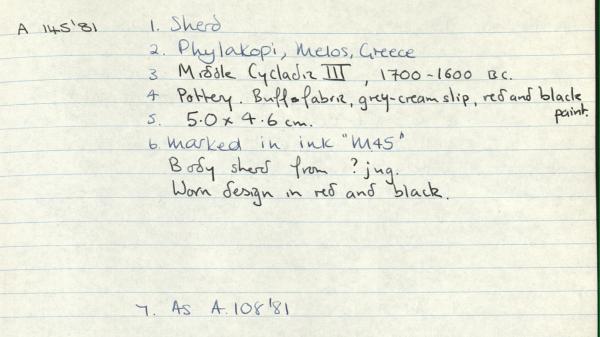 A 145'81 1. Sherd
2. Phylakopi, Melos, Greece
3 Middle Cycladic III, 1700-1600 BC.
4 Pottery. Buff fabric, grey-cream slip, red and black paint.
5. 5.0 x 4.6 cm.
6. Marked in ink "M45"
Body sherd from ? jug.
Worn design in red and black.
7. As A.108'81